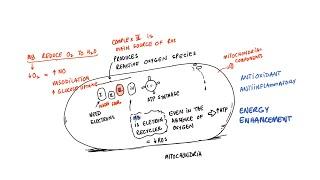 COMPLEX III IS
MAIN SOURCE OF ROS
MB REDUCE O₂ TO H₂O
↓O₂ = ↑NO
VASODILATION
↑ GLUCOSE UPTAKE
PRODUCES
REACTIVE OXYGEN SPECIES
MITOCHONDRIAL
COMPONENTS
ANTIOXIDANT
ANTIINFLAMMATORY
ENERGY
ENHANCEMENT
I
II
III
IV
ATP SYNTHASE
NEED
ELECTRONS
MB
IS ELECTRON
RECYCLER
EVEN IN THE
ABSENCE OF
OXYGEN
↑ATP
= ↓ROS
MITOCHONDRIA